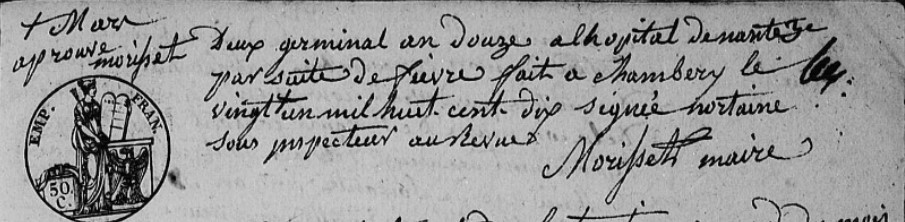 + Mars
aprouvé
morisset
Deux germinal an douze a lhopital de nante
par suite de fievre fait a chambery le
vingt un mil huit cent dix signée nortaine
sous inspecteur au Revues
Morisset maire
EMP. FRAN.
50.
C.